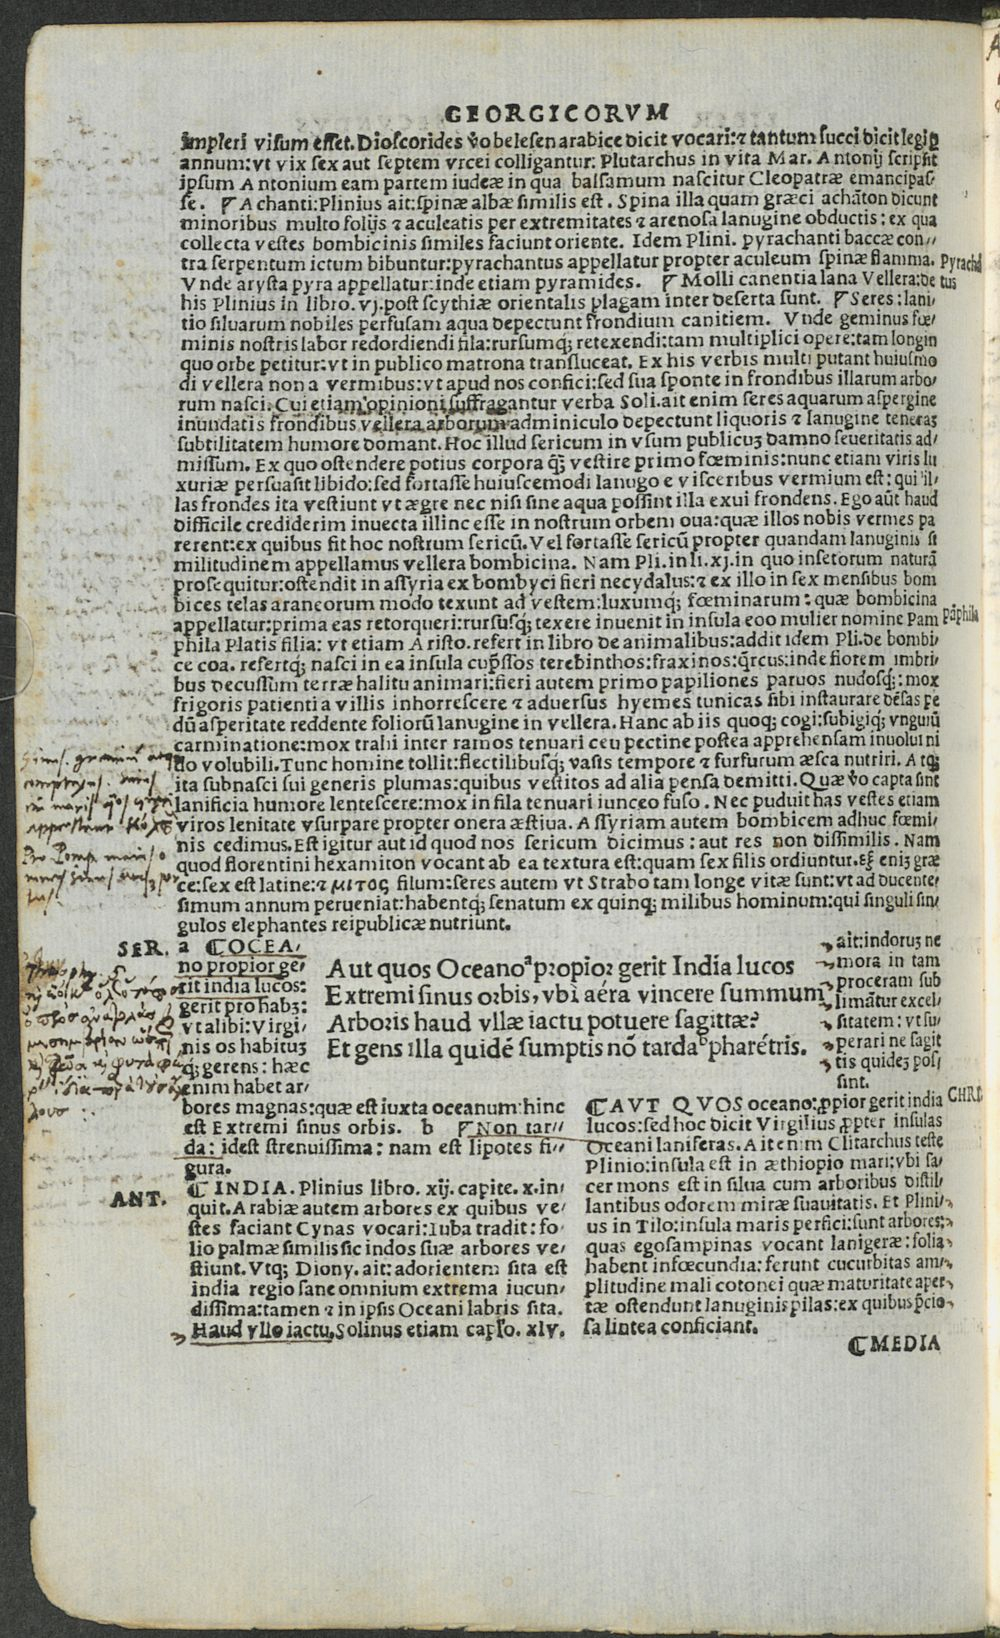 GEORGICORVM
impleri visum esset. Dioscorides v̊o belesen arabice dicit vocari:⁊ tantum succi dicit legi ꝑ
annum:vt vix sex aut septem vrcei colligantur: Plutarchus in vita Mar. Antonij scripsit
ipsum Antonium eam partem iudeæ in qua balsamum nascitur Cleopatræ emancipas⸗
se. ¶ Achanti:Plinius ait:spinæ albæ similis est. Spina illa quam græci achāton dicunt
minoribus multo folijs ⁊ aculeatis per extremitates ⁊ arenosa lanugine obductis: ex qua
collecta vestes bombicinis similes faciunt oriente. Idem Plini. pyrachanti baccæ con⸗
tra serpentum ictum bibuntur:pyrachantus appellatur propter aculeum spinæ flamma.
Vnde arysta pyra appellatur:inde etiam pyramides. ¶ Molli canentia lana Vellera:de
Pyrachā
tus
his Plinius in libro. vj. post scythiæ orientalis plagam inter deserta sunt. ¶ Seres:lani⸗
tio siluarum nobiles perfusam aqua depectunt frondium canitiem. Vnde geminus fœ⸗
minis nostris labor redordiendi fila:rursumq; retexendi:tam multiplici opere:tam longin
quo orbe petitur:vt in publico matrona transluceat. Ex his verbis multi putant huiusmo
di vellera non a vermibus:vt apud nos confici:sed sua sponte in frondibus illarum arbo⸗
rum nasci. Cui etiam opinioni suffragantur verba Soli. ait enim seres aquarum aspergine
inundatis frondibus vellera arborum adminiculo depectunt liquoris ⁊ lanugine teneraꝫ
subtilitatem humore domant. Hoc illud sericum in vsum publicuꝫ damno seueritatis ad⸗
missum. Ex quo ostendere potius corpora q̄ꝫ vestire primo fœminis:nunc etiam viris lu
xuriæ persuasit libido: sed fortasse huiuscemodi lanugo e visceribus vermium est: qui il⸗
las frondes ita vestiunt vt ægre nec nisi sine aqua possint illa exui frondens. Ego aūt haud
difficile crediderim inuecta illinc esse in nostrum orbem oua:quæ illos nobis vermes pa
rerent:ex quibus fit hoc nostrum sericū. Vel fortasse sericū propter quandam lanuginis si
militudinem appellamus vellera bombicina. Nam Pli. in li. xj. in quo insetorum naturā
prosequitur:ostendit in assyria ex bombyci fieri necydalus:⁊ ex illo in sex mensibus bom
bices telas araneorum modo texunt ad vestem:luxumq; fœminarum: quæ bombicina
appellatur:prima eas retorqueri:rursusq; texere inuenit in insula eoo mulier nomine Pam
Pāphila
phila Platis filia: vt etiam Aristo. refert in libro de animalibus:addit idem Pli. de bombi⸗
ce coa. refertq; nasci in ea insula cup̄ssos terebinthos:fraxinos:q̄rcus:inde florem imbri⸗
bus decussum terræ halitu animari:fieri autem primo papiliones paruos nudosq;: mox
frigoris patientia villis inhorrescere ⁊ aduersus hyemes tunicas sibi instaurare dēsas pe
dū asperitate reddente foliorū lanugine in vellera. Hanc ab iis quoq; cogi:subigiq; vnguiū
carminatione:mox trahi inter ramos tenuari ceu pectine postea apprehensam inuolui ni
do volubili. Tunc homine tollit:flectilibusq; vasis tempore ⁊ furfurum æsca nutriri. Atq;
ita subnasci sui generis plumas:quibus vestitos ad alia pensa demitti. Quæ v̊o capta sint
lanificia humore lentescere:mox in fila tenuari iunceo fuso. Nec puduit has vestes etiam
viros lenitate vsurpare propter onera æstiua. Assyriam autem bombicem adhuc fœmi⸗
nis cedimus. Est igitur aut id quod nos sericum dicimus: aut res non dissimilis. Nam
quod florentini hexamiton vocant ab ea textura est:quam sex filis ordiuntur. eniꝫ græ
ce:sex est latine:⁊ μιτος filum:seres autem vt Strabo tam longe vitæ sunt:vt ad ducente⸗
simum annum perueniat:habentq; senatum ex quinq; milibus hominum:qui singuli sin⸗
gulos elephantes reipublicæ nutriunt.
SER. a ¶ OCEA⸗
no propior ge⸗
rit india lucos:
gerit pro habꝫ:
vt alibi: Virgi⸗
nis os habituꝫ
q; gerens: hæc
enim habet ar⸗
bores magnas:quæ est iuxta oceanum:hinc
est Extremi sinus orbis. b ¶ Non tar⸗
da: idest strenuissima: nam est lipotes fi⸗
gura.
Aut quos Oceano ᵃpropior gerit India lucos
Extremi sinus orbis, vbi aéra vincere summum
Arboris haud vllæ iactu potuere sagittæ?
Et gens illa quidé sumptis nō tarda ᵇpharétris.
ANT. ¶ INDIA. Plinius libro. xij. capite. x. in⸗
quit. Arabiæ autem arbores ex quibus ve⸗
stes faciant Cynas vocari: Iuba tradit: fo⸗
lio palmæ similis sic indos suæ arbores ve⸗
stiunt. Vtq; Diony. ait: ad orientem sita est
india regio sane omnium extrema iucun⸗
dissima:tamen ⁊ in ipsis Oceani labris sita.
Haud vllo iactu. Solinus etiam caplo. xlv.
ait:indoruꝫ ne
mora in tam
proceram sub
limātur excel⸗
sitatem: vt su⸗
perari ne sagit
tis quideꝫ pos⸗
sint.
CHRI
¶ AVT QVOS oceano:ꝓpior gerit india
lucos:sed hoc dicit Virgilius ꝓpter insulas
Oceani laniferas. Ait enim Clitarchus teste
Plinio:insula est in æthiopio mari:vbi sa⸗
cer mons est in silua cum arboribus distil⸗
lantibus odorem miræ suauitatis. Et Plini⸗
us in Tilo:insula maris persici:sunt arbores:
quas egosampinas vocant lanigeræ: folia
habent infœcundia: ferunt cucurbitas am⸗
plitudine mali cotonei quæ maturitate aper⸗
tæ ostendunt lanuginis pilas:ex quibus p̄cio⸗
sa lintea conficiant.
¶ MEDIA